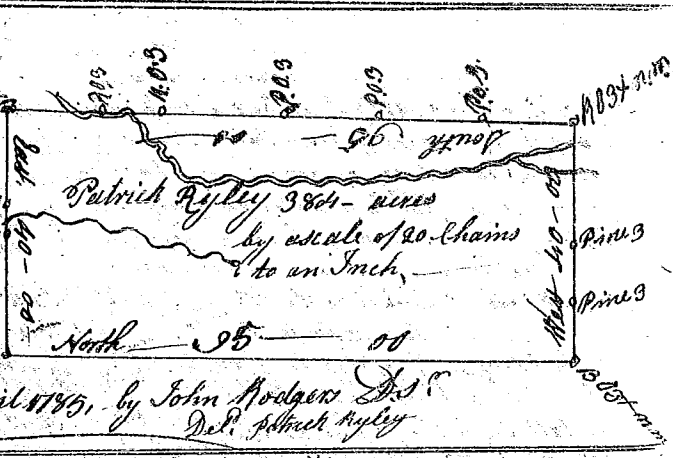 R.O.3 P.O.3 P.O.3 P.O.3.
South — 95 — 00
East. 40 - 00
Patrick Ryley 384 - acres
by a scale of 20 Chains
to an Inch,
West 40 - 00
Pine 3
Pine 3
North — 95 — 00
1785, by John Rodgers D.S.
Del. Patrick Ryley